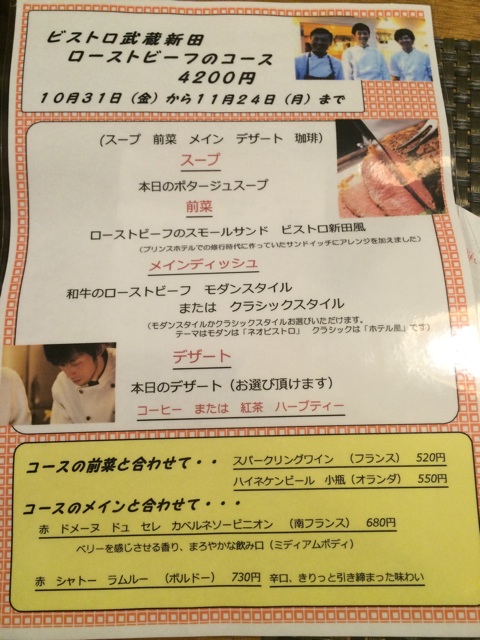 ビストロ武蔵新田
ローストビーフのコース
4200円
10月31日（金）から11月24日（月）まで
(スープ　前菜　メイン　デザート　珈琲)
スープ
本日のポタージュスープ
前菜
ローストビーフのスモールサンド　ビストロ新田風
（プリンスホテルでの修行時代に作っていたサンドイッチにアレンジを加えました）
メインディッシュ
和牛のローストビーフ　モダンスタイル
または　クラシックスタイル
（モダンスタイルかクラシックスタイルお選びいただけます。
テーマはモダンは「ネオビストロ」　クラシックは「ホテル風」です）
デザート
本日のデザート（お選び頂けます）
コーヒー　または　紅茶　ハーブティー
コースの前菜と合わせて・・　スパークリングワイン　（フランス）　520円
ハイネケンビール　小瓶（オランダ）　550円
コースのメインと合わせて・・・
赤　ドメーヌ　ドュ　セレ　カベルネソービニオン　（南フランス）　680円
ベリーを感じさせる香り、まろやかな飲み口（ミディアムボディ）
赤　シャトー　ラムルー　（ボルドー）　730円　辛口、きりっと引き締まった味わい